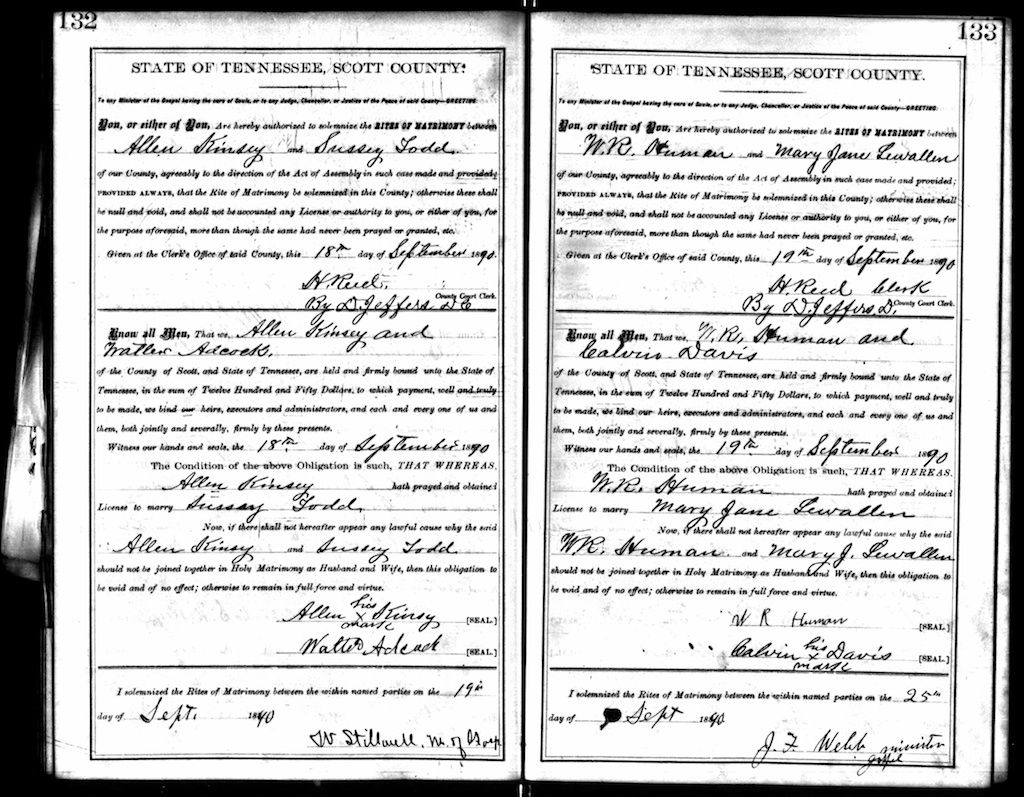 132
STATE OF TENNESSEE, SCOTT COUNTY.
To any Minister of the Gospel having the care of Souls, or to any Judge, Chancellor, or Justice of the Peace of said County—GREETING.
You, or either of You, Are hereby authorized to solemnize the RITES OF MATRIMONY between
Allen Kinsey and Sussey Todd
of our County, agreeably to the direction of the Act of Assembly in such case made and provided;
PROVIDED ALWAYS, that the Rite of Matrimony be solemnized in this County; otherwise these shall
be null and void, and shall not be accounted any License or authority to you, or either of you, for
the purpose aforesaid, more than though the same had never been prayed or granted, etc.
Given at the Clerk's Office of said County, this 18th day of September 1890.
H. Reed.
County Court Clerk.
By D. Jeffers D C
Know all Men, That we, Allen Kinsey and
Watler Adcock.
of the County of Scott, and State of Tennessee, are held and firmly bound unto the State of
Tennessee, in the sum of Twelve Hundred and Fifty Dollars, to which payment, well and truly
to be made, we bind our heirs, executors and administrators, and each and every one of us and
them, both jointly and severally, firmly by these presents.
Witness our hands and seals, the 18th day of September 1890
The Condition of the above Obligation is such, THAT WHEREAS,
Allen Kinsey hath prayed and obtained
License to marry Sussey Todd
Now, if there shall not hereafter appear any lawful cause why the said
Allen Kinsy and Sussey Todd
should not be joined together in Holy Matrimony as Husband and Wife, then this obligation to
be void and of no effect; otherwise to remain in full force and virtue.
his
Allen X Kinsy [SEAL.]
mark
Adcock [SEAL.]
I solemnized the Rites of Matrimony between the within named parties on the 19th
day of Sept. 1890
W Stillwell. M. of Gosp
133
STATE OF TENNESSEE, SCOTT COUNTY.
To any Minister of the Gospel having the care of Souls, or to any Judge, Chancellor, or Justice of the Peace of said County—GREETING.
You, or either of You, Are hereby authorized to solemnize the RITES OF MATRIMONY between
W. R. Human and Mary Jane Lewallen
of our County, agreeably to the direction of the Act of Assembly in such case made and provided;
PROVIDED ALWAYS, that the Rite of Matrimony be solemnized in this County; otherwise these shall
be null and void, and shall not be accounted any License or authority to you, or either of you, for
the purpose aforesaid, more than though the same had never been prayed or granted, etc.
Given at the Clerk's Office of said County, this 19th day of September 1890
H. Reed Clerk
County Court Clerk.
By D. Jeffers D.
Know all Men, That we, W. R. Human and
Calvin Davis
of the County of Scott, and State of Tennessee, are held and firmly bound unto the State of
Tennessee, in the sum of Twelve Hundred and Fifty Dollars, to which payment, well and truly
to be made, we bind our heirs, executors and administrators, and each and every one of us and
them, both jointly and severally, firmly by these presents.
Witness our hands and seals, the 19th day of September 1890
The Condition of the above Obligation is such, THAT WHEREAS,
W. R. Human hath prayed and obtained
License to marry Mary Jane Lewallen
Now, if there shall not hereafter appear any lawful cause why the said
W R. Human and Mary J. Lewallen
should not be joined together in Holy Matrimony as Husband and Wife, then this obligation to
be void and of no effect; otherwise to remain in full force and virtue.
W R Human [SEAL.]
his
Calvin X Davis [SEAL.]
mark
I solemnized the Rites of Matrimony between the within named parties on the 25th
day of Sept 1890
J. F. Webb minister
gospel